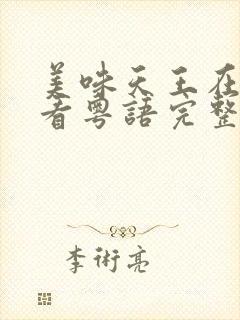 美味天王在
看粤語完整
李術亮